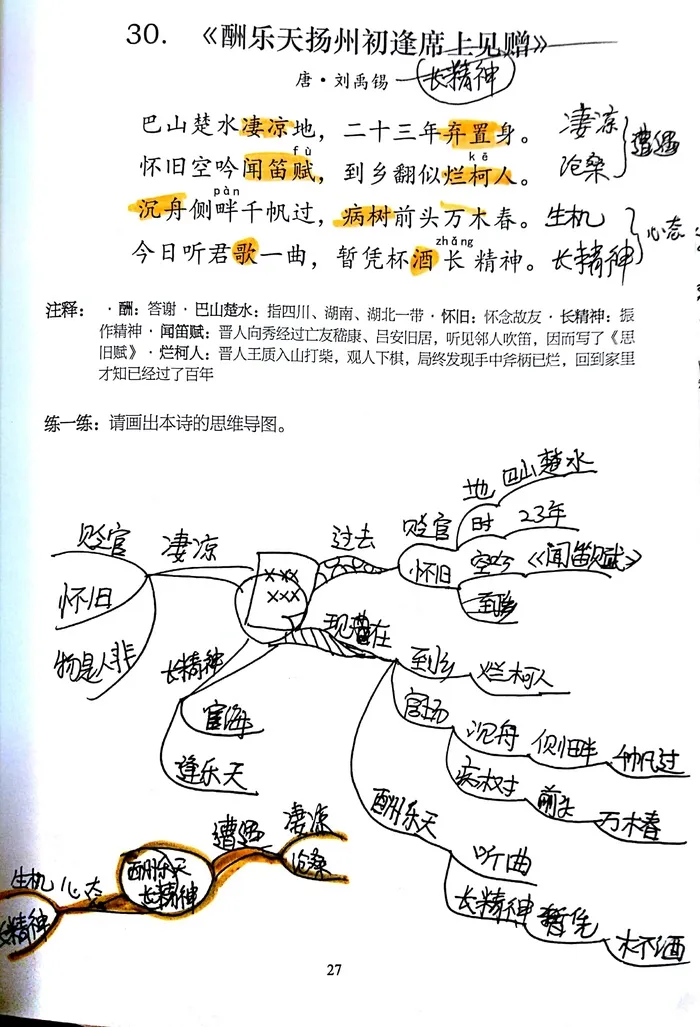 30. 《酬乐天扬州初逢席上见赠》
唐·刘禹锡 长精神
巴山楚水凄凉地，二十三年弃置身。 凄凉
fù kē
怀旧空吟闻笛赋，到乡翻似烂柯人。 沧桑 遭遇
pàn
沉舟侧畔千帆过，病树前头万木春。 生机
zhǎng 心态
今日听君歌一曲，暂凭杯酒长精神。 长精神
注释： ·酬：答谢·巴山楚水：指四川、湖南、湖北一带·怀旧：怀念故友·长精神：振
作精神·闻笛赋：晋人向秀经过亡友嵇康、吕安旧居，听见邻人吹笛，因而写了《思
旧赋》·烂柯人：晋人王质入山打柴，观人下棋，局终发现手中斧柄已烂，回到家里
才知已经过了百年
练一练：请画出本诗的思维导图。
地 巴山楚水
贬官 凄凉 过去 贬官 时 23年
×××
×××
怀旧 怀旧 空吟 《闻笛赋》
至乡
现在
物是人非 长精神 到乡 烂柯人
宦海 官场 沉舟 侧畔 千帆过
逢乐天 病树 前头 万木春
酬乐天
遭遇 凄凉 听曲
生机 心态 酬乐天 沧桑
长精神 长精神 长精神 暂凭
杯酒
27